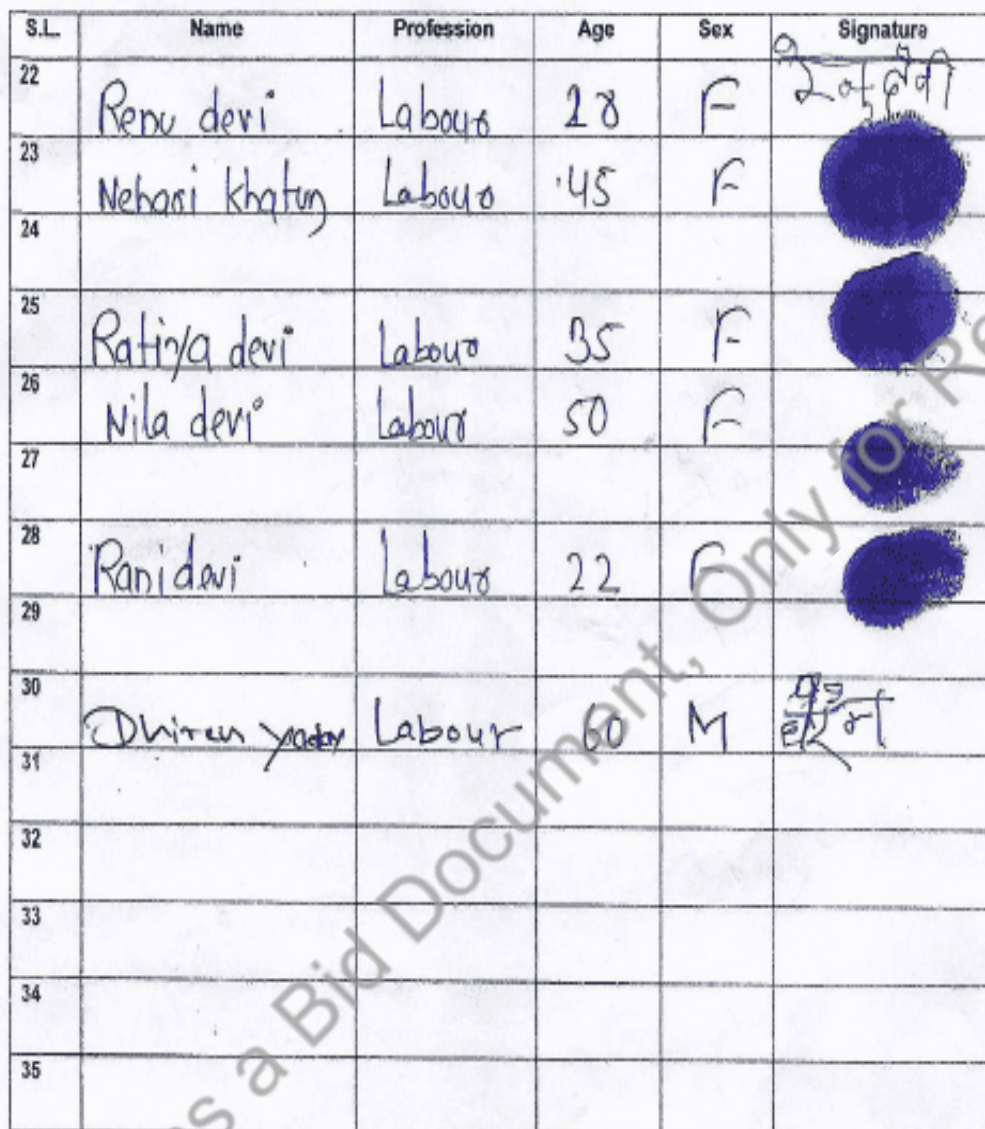 S.L. Name Profession Age Sex Signature
22 Renu devi Labour 28 F
23 Nehari Khatun Labour 45 F
24
25 Ratiya devi Labour 35 F
26 Nila devi Labour 50 F
27
28 Rani devi Labour 22 F
29
30 Dhiren yadav Labour 60 M
31
32
33
34
35
as a Bid Document, Only for Re